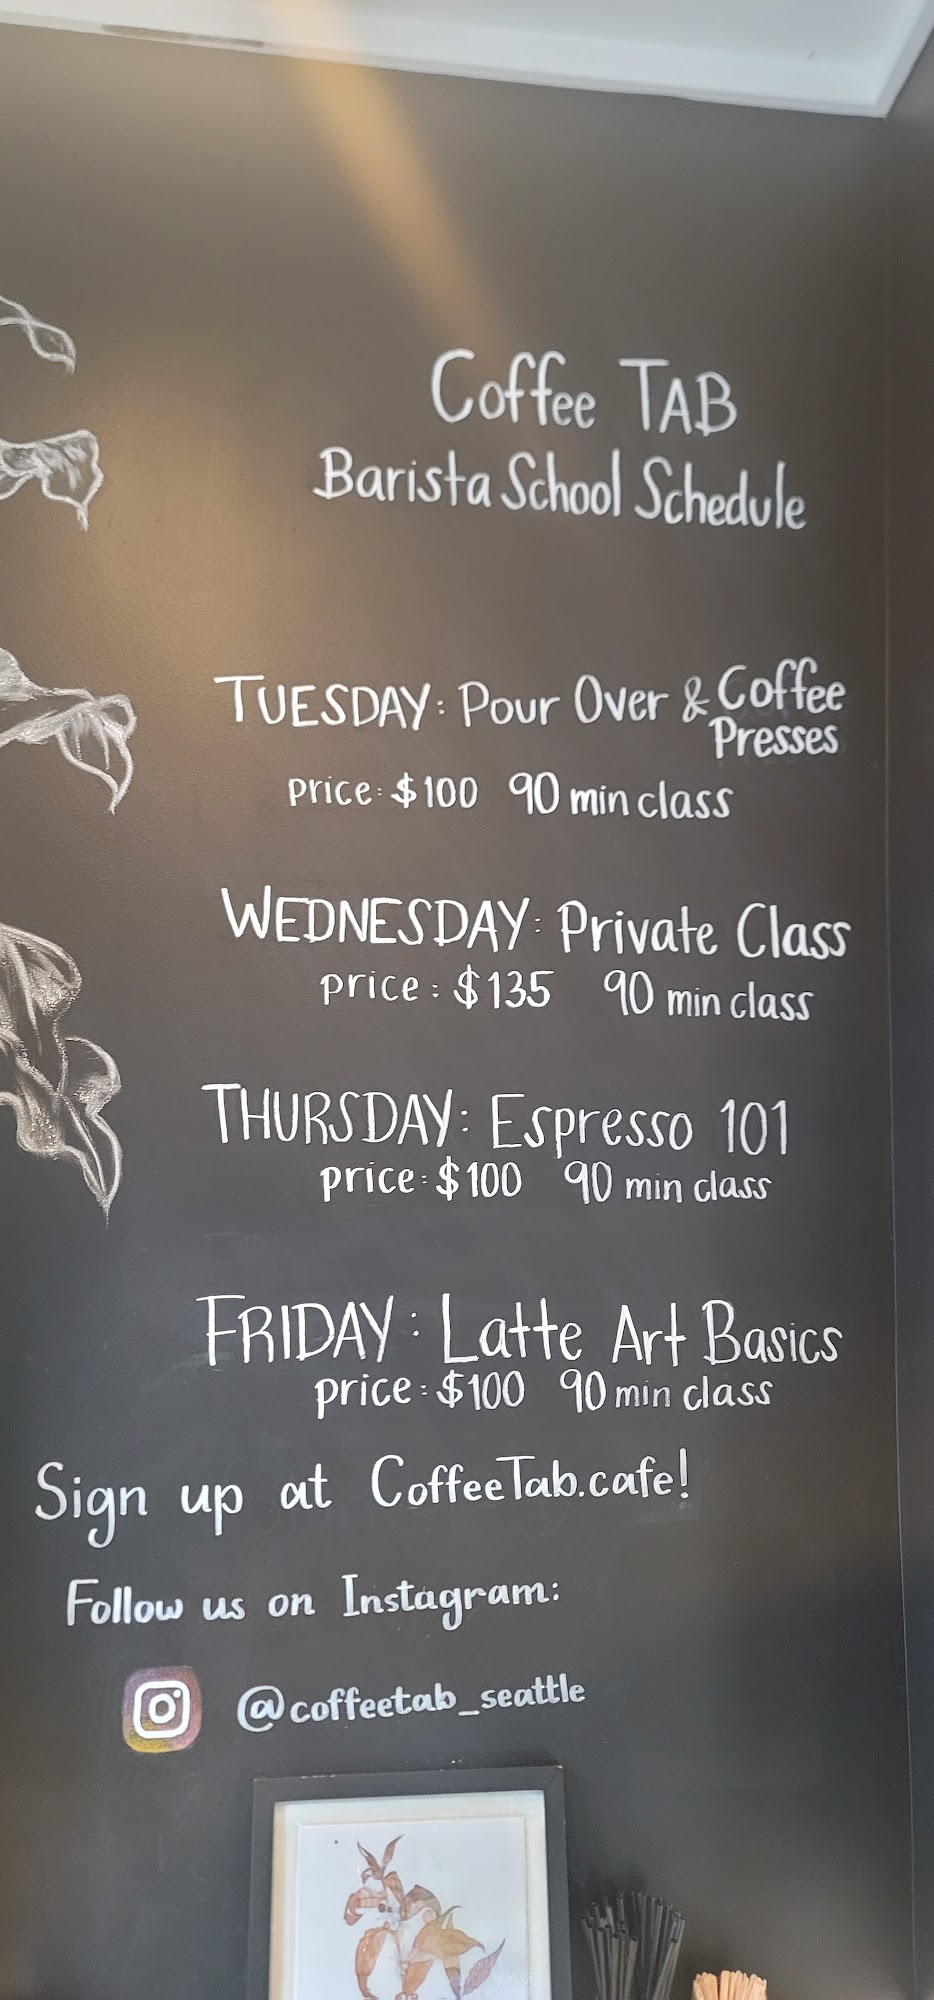 Coffee TAB
Barista School Schedule
TUESDAY: Pour Over & Coffee
Presses
price: $100 90 min class
WEDNESDAY: Private Class
price: $135 90 min class
THURSDAY: Espresso 101
price: $100 90 min class
FRIDAY: Latte Art Basics
price: $100 90 min class
Sign up at CoffeeTab.cafe!
Follow us on Instagram:
@coffeetab_seattle